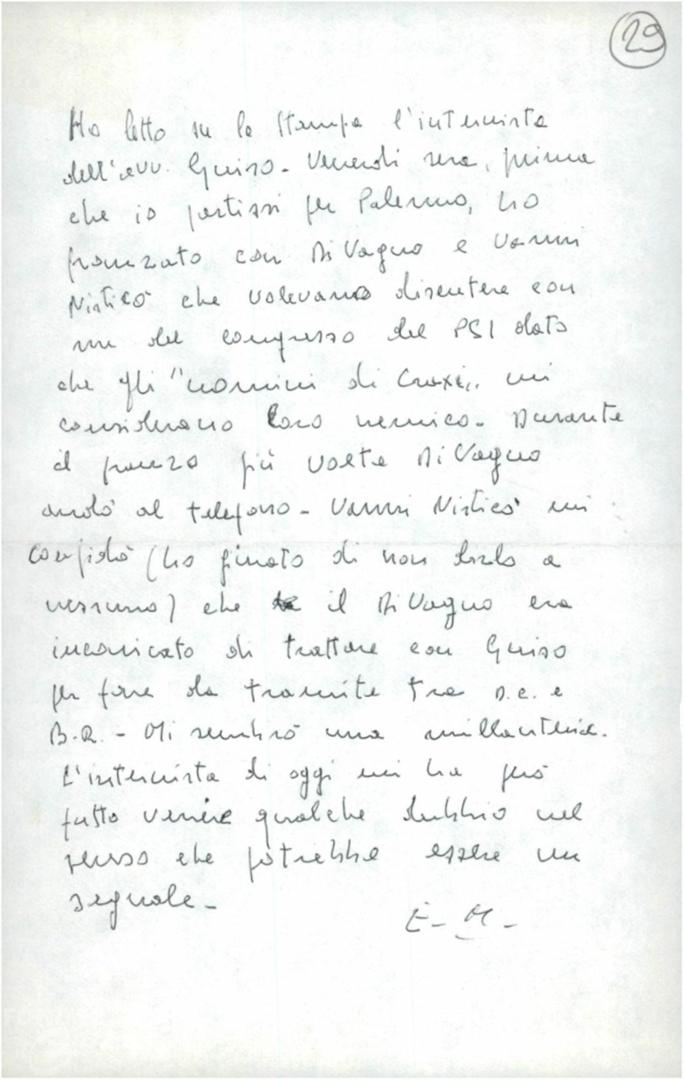 29
Ho letto su la Stampa l'intervista
dell'avv. Guiso - Venerdì sera, prima
che io partissi per Palermo, ho
pranzato con Di Vagno e Vanni
Nisticò che volevano discutere con
me del congresso del PSI dato
che gli "uomini di Craxi" mi
considerano loro nemico - Durante
il pranzo più volte Di Vagno
andò al telefono - Vanni Nisticò mi
confidò (ho giurato di non dirlo a
nessuno) che il Di Vagno era
incaricato di trattare con Guiso
per fare da tramite tra D.C. e
B.R. - Mi sembrò una millanteria.
L'intervista di oggi mi ha però
fatto venire qualche dubbio nel
senso che potrebbe essere un
segnale -
E - M -